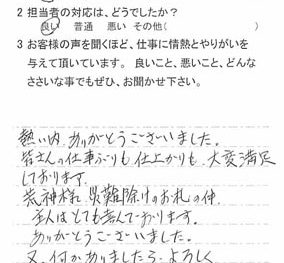 2 担当者の対応は、どうでしたか？
良い　普通　悪い　その他（　　　　　）
3 お客様の声を聞くほど、仕事に情熱とやりがいを
与えて頂いています。 良いこと、悪いこと、どんな
ささいな事でもぜひ、お聞かせ下さい。
熱い内、ありがとうございました。
皆さんの仕事ぶりも 仕上がりも、大変満足
しております。
荒神様、災難除けのお札の件、
主人はとても喜んでおります。
ありがとうございました。
又、何かありましたら、よろしく